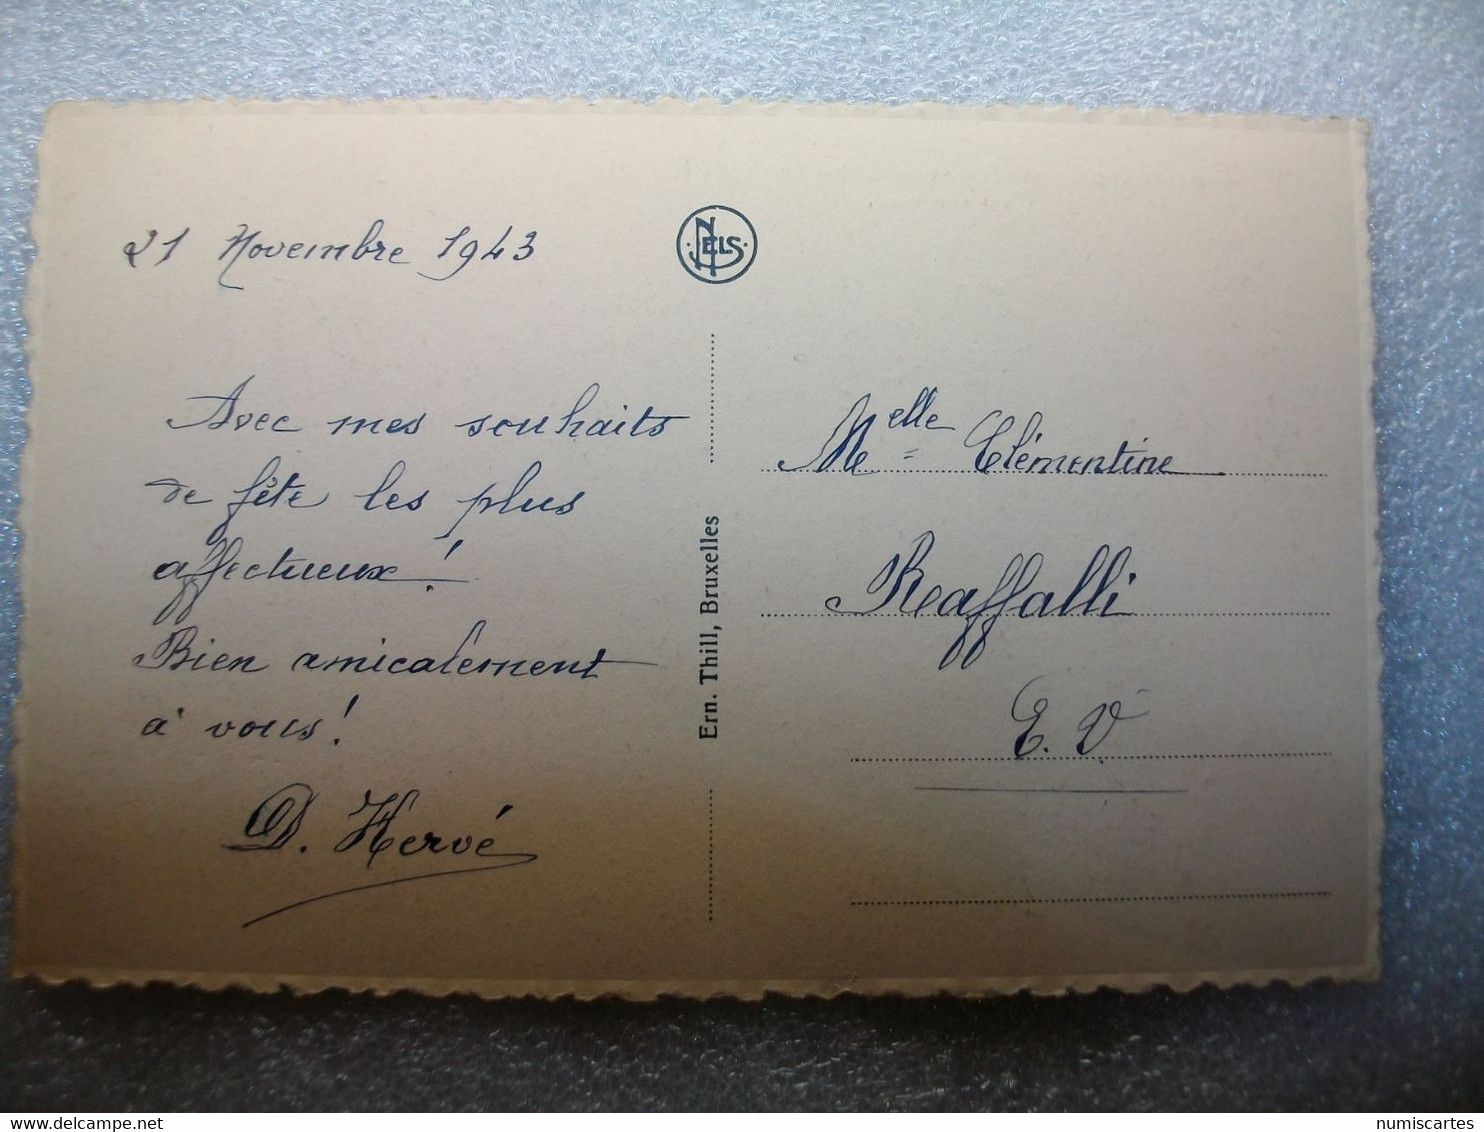 21 Novembre 1943
Avec mes souhaits
de fête les plus
affectueux !
Bien amicalement
à vous !
D. Hervé
NELS
Ern. Thill, Bruxelles
Melle Clémentine
Raffalli
E. V.
numiscartes